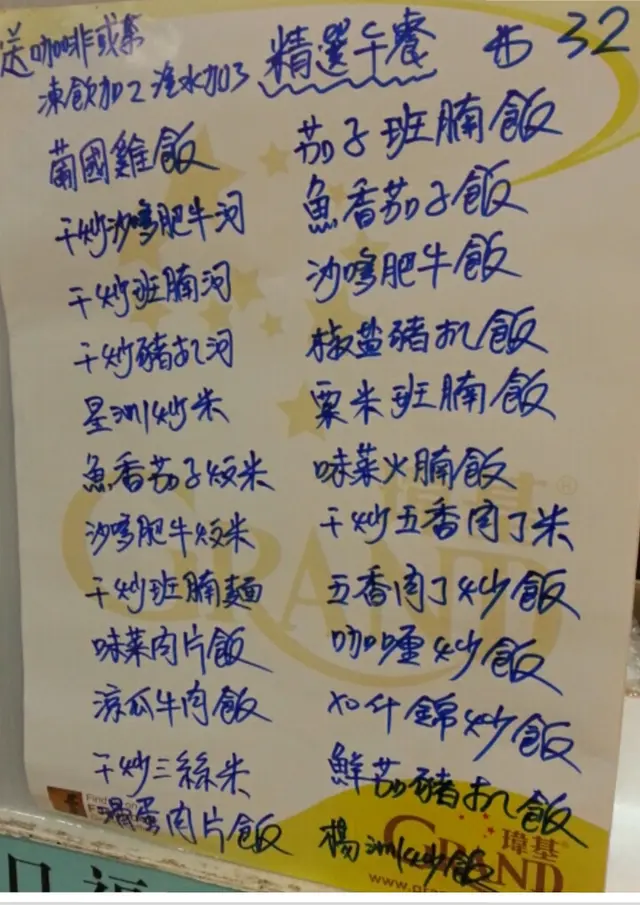 送咖啡或茶
凍飲加2 汽水加3
精選午餐 $32
葡國雞飯
干炒沙嗲肥牛河
干炒班腩河
干炒豬扒河
星洲炒米
魚香茄子炆米
沙嗲肥牛炆米
干炒班腩麵
味菜肉片飯
涼瓜牛肉飯
干炒三絲米
滑蛋肉片飯
茄子班腩飯
魚香茄子飯
沙嗲肥牛飯
椒盐豬扒飯
粟米班腩飯
味菜火腩飯
干炒五香肉丁米
五香肉丁炒飯
咖喱炒飯
什錦炒飯
鮮茄豬扒飯
楊洲炒飯
瑋基®
GRAND
瑋基
GRAND